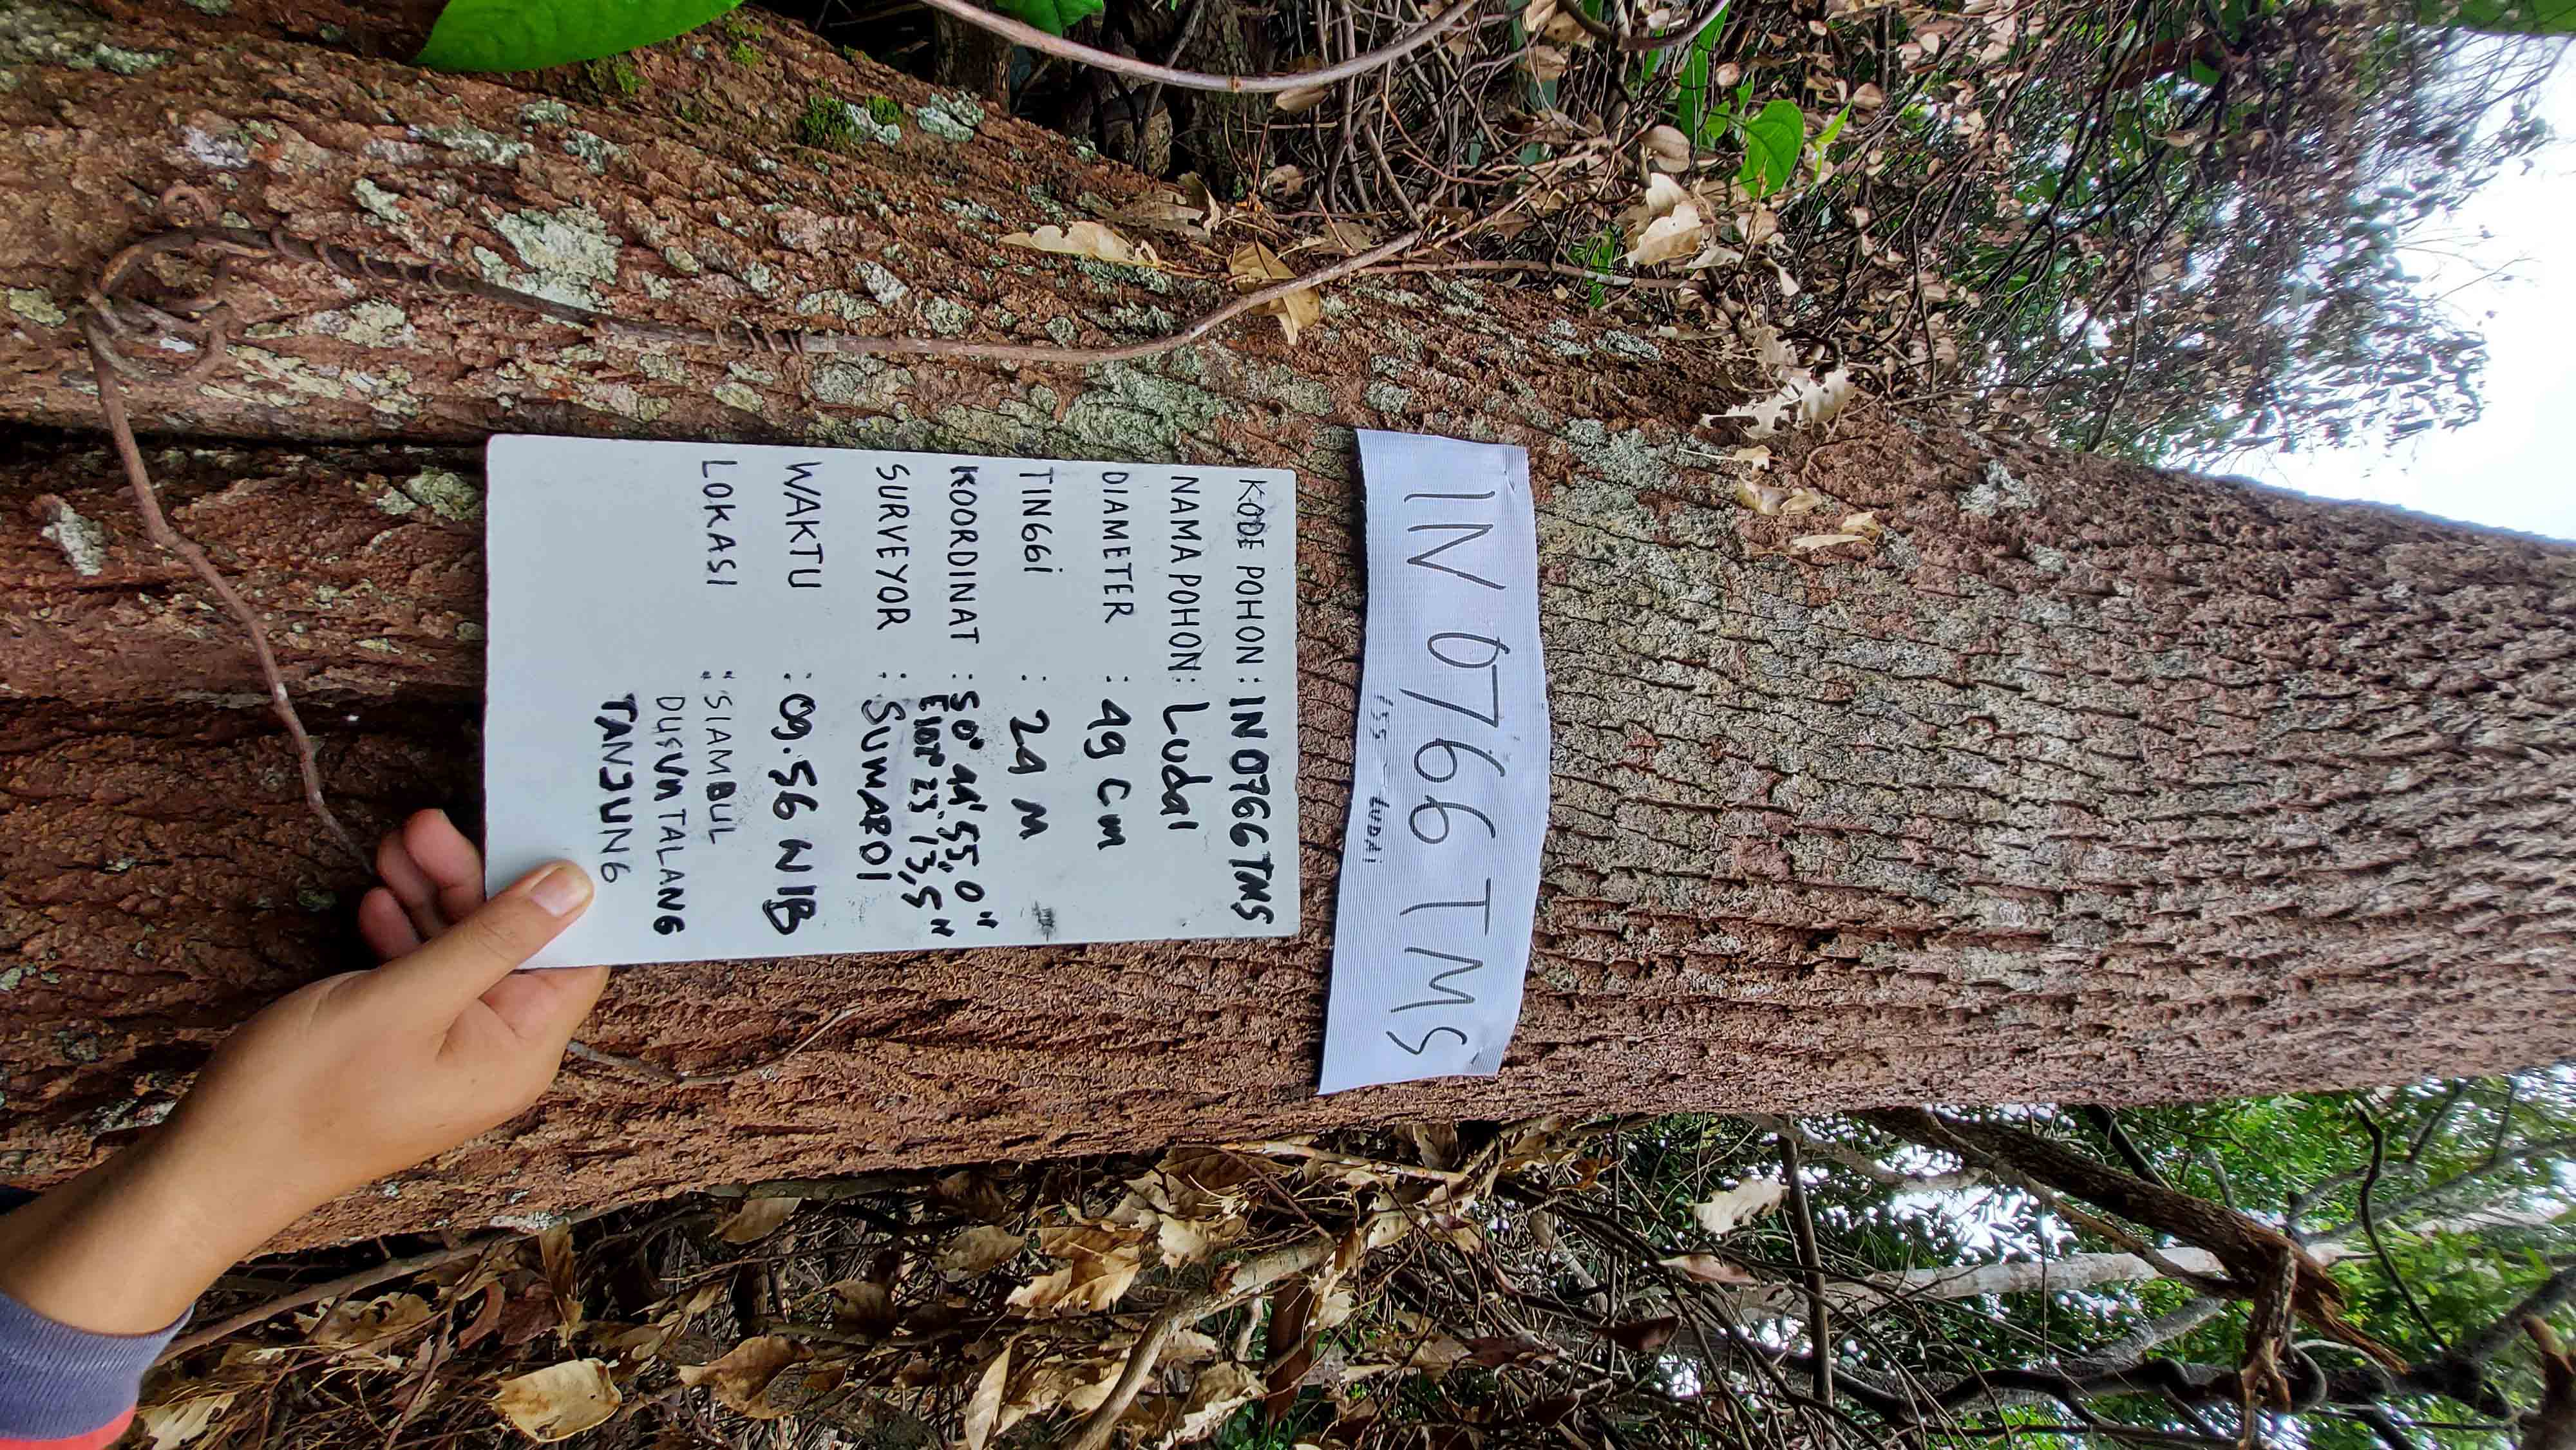 IN 0766 TMS
155 LUDAI
KODE POHON : IN 0766 TMS
NAMA POHON : Ludai
DIAMETER : 49 Cm
TINGGI : 24 M
KOORDINAT : S 0° 44' 55,0"
E 102° 23' 13,5"
SURVEYOR : SUMARDI
WAKTU : 09.56 WIB
LOKASI : SIAMBUL
DUSUN TALANG
TANJUNG